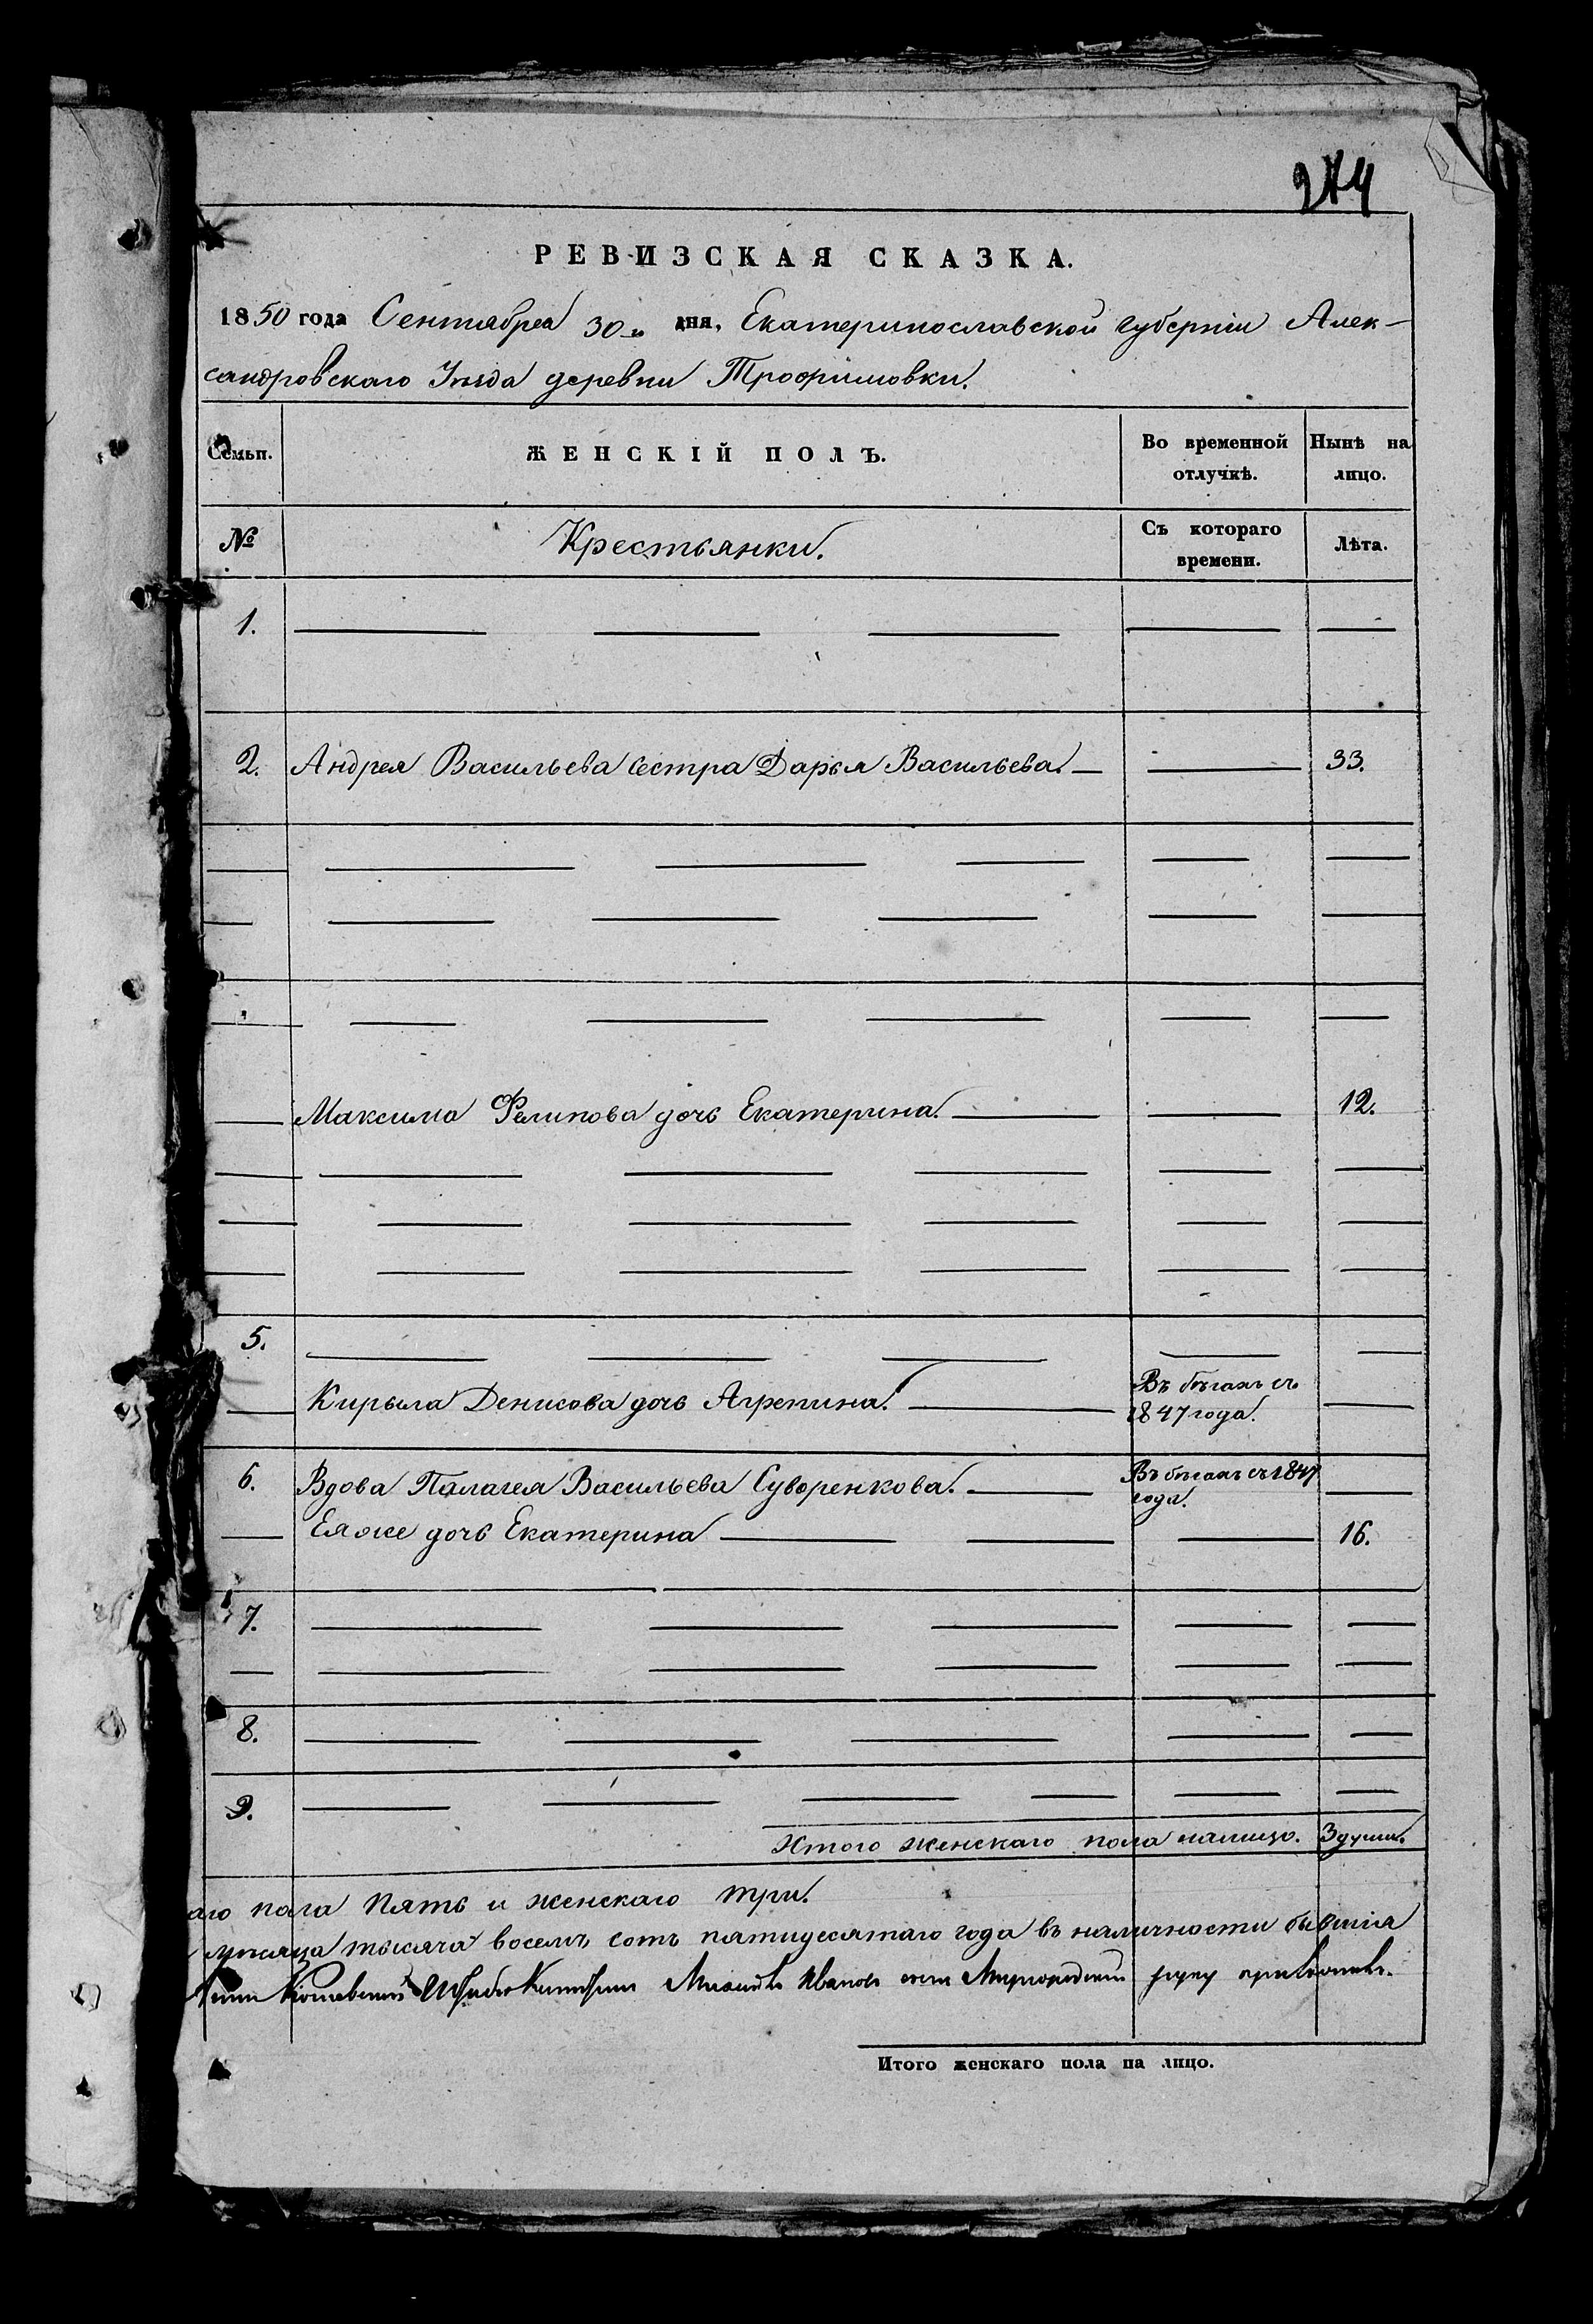 РЕВИЗСКАЯ СКАЗКА.
1850 года Сентября 30го дня, Екатеринославской губернiи Алек-
сандровскаго Уѣзда деревни Трофимовки.
Семьи. ЖЕНСКIЙ ПОЛЪ. Во временной отлучкѣ. Нынѣ на лицо.
№ Крестьянки. Съ котораго времени. Лѣта.
1.
2. Андрея Васильева сестра Дарья Васильева. 33.
Максима Филипова дочь Екатерина. 12.
5.
Кирыла Денисова дочь Агрепина. Въ бѣгахъ съ 1847 года.
6. Вдова Палагея Васильева Суворенкова. Въ бѣгахъ съ 1847 года.
Еяже дочь Екатерина 16.
7.
8.
9.
Итого женскаго пола налицо. 3 души.
аго пола пять и женскаго три.
мѣсяца тысяча восемъ сотъ пятидесятаго года въ наличности бывшiя
Иванов руку приложилъ.
Итого женскаго пола на лицо.